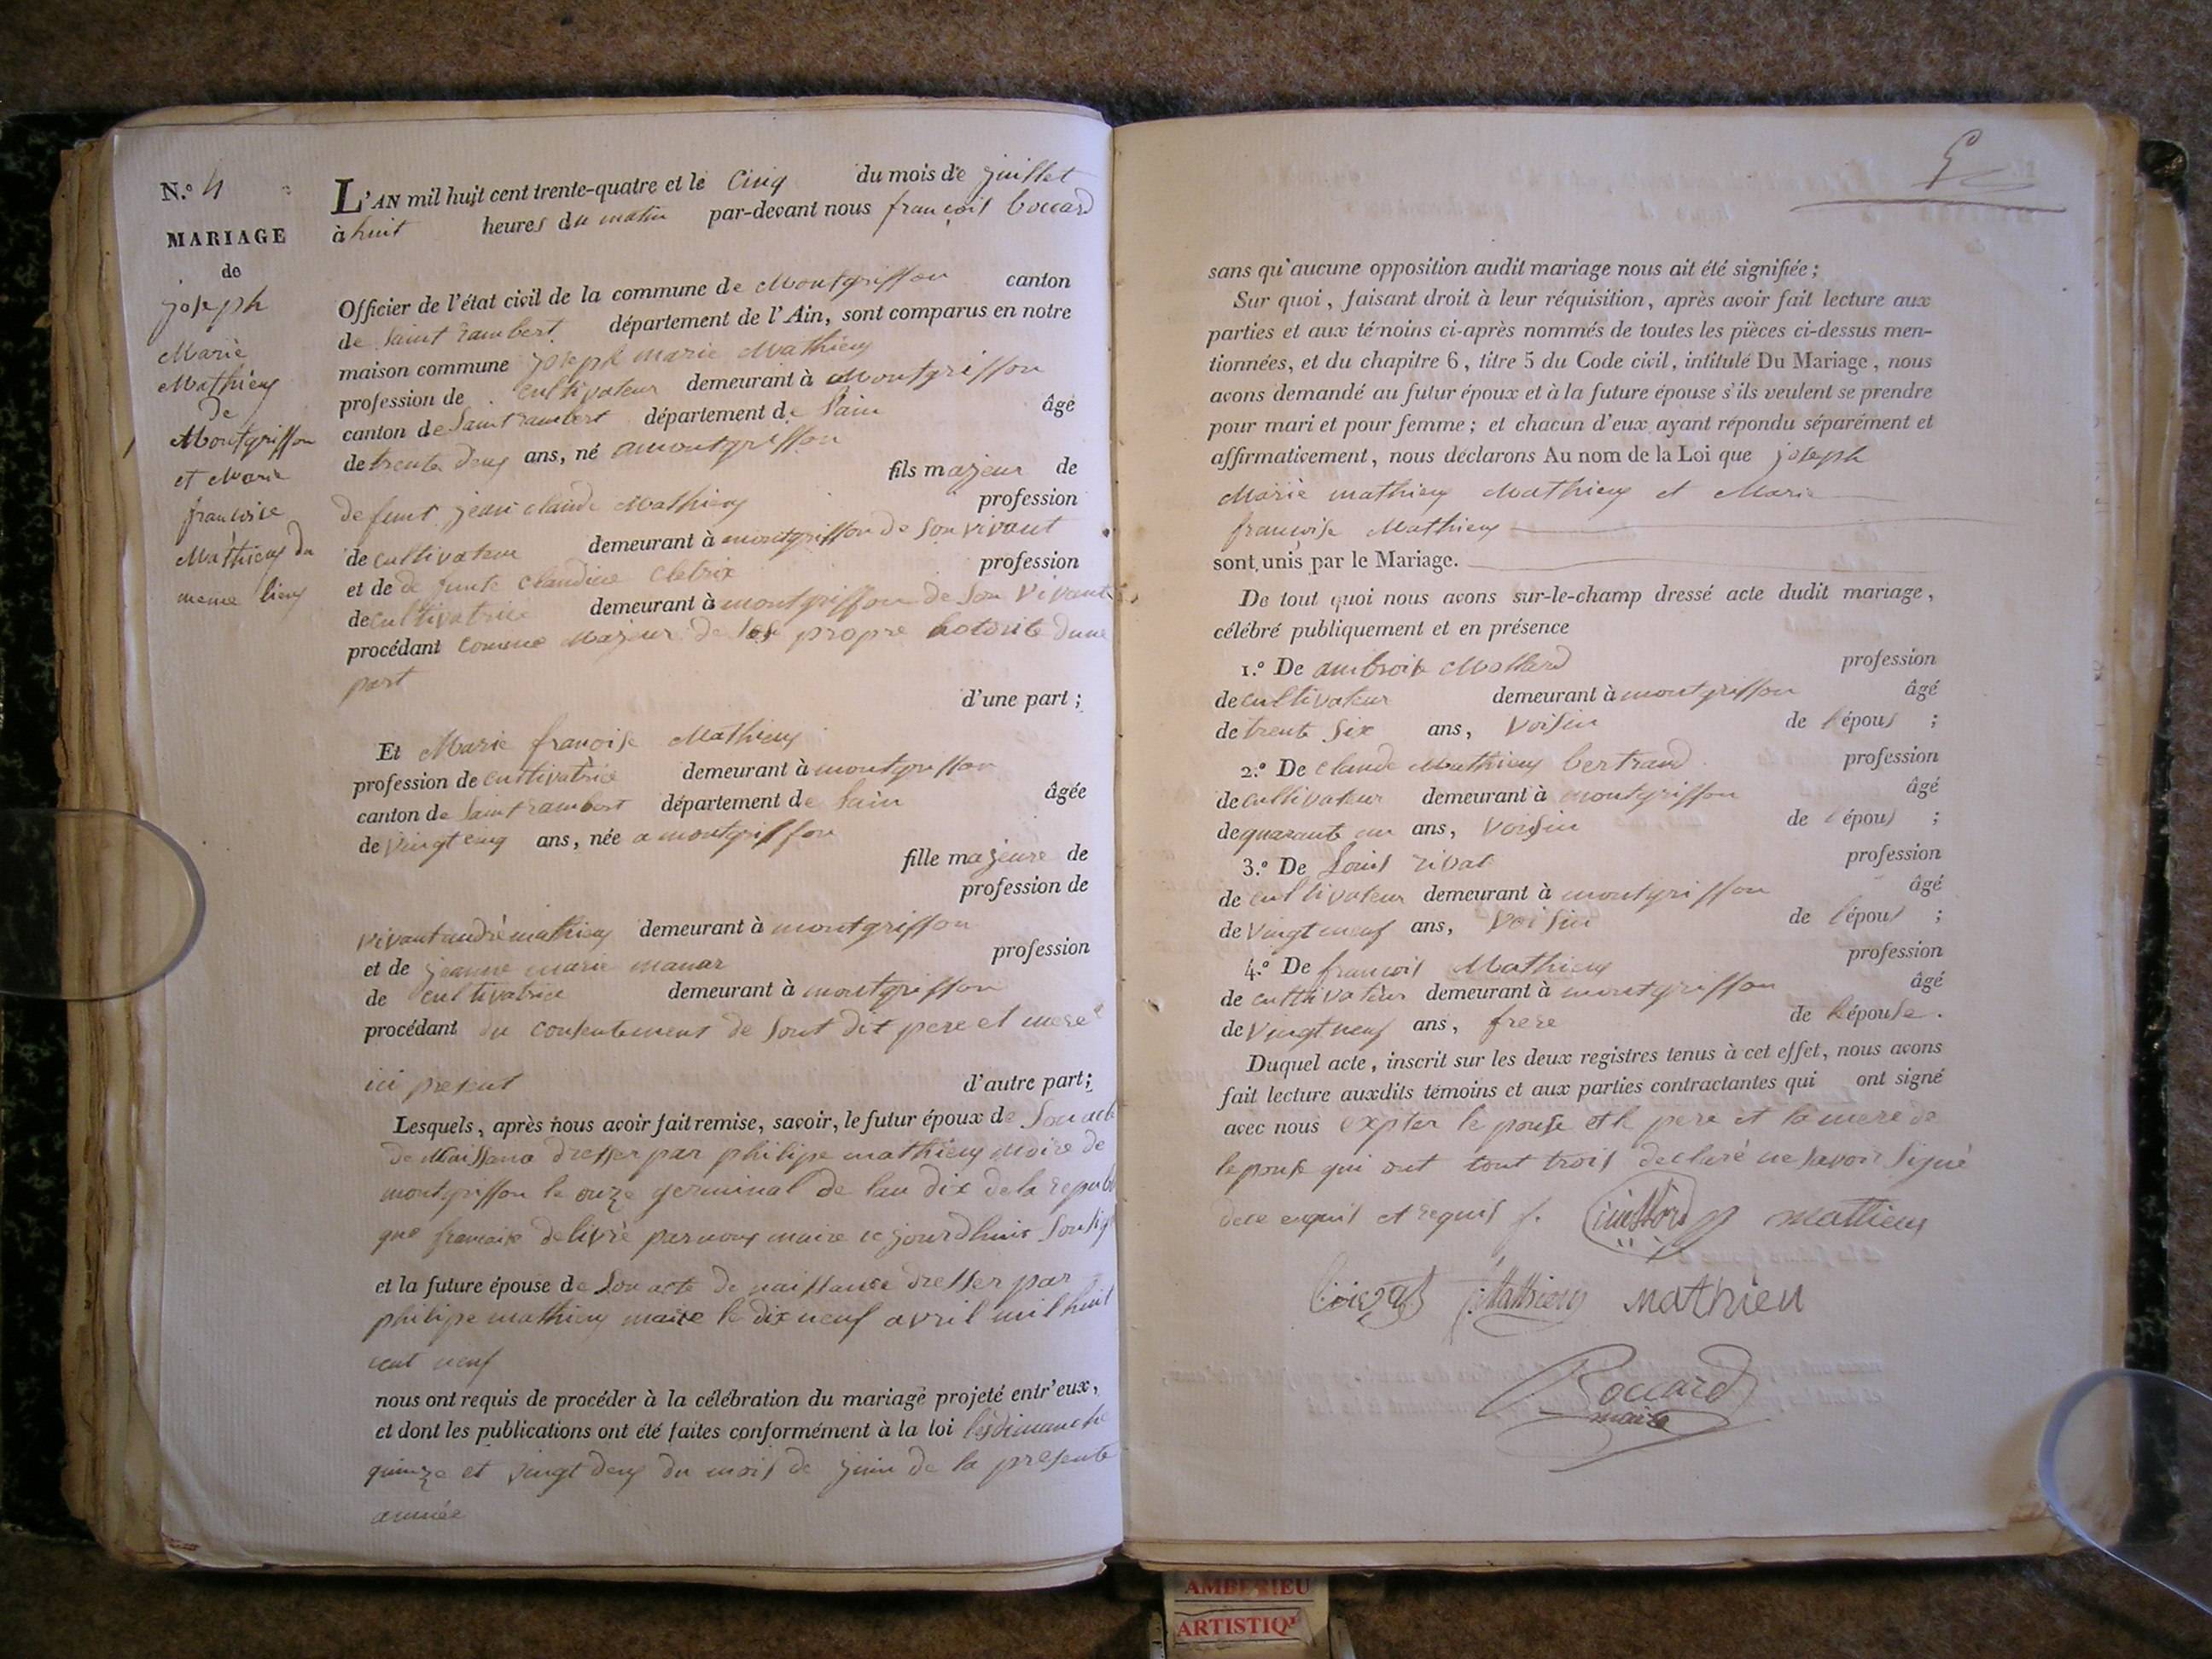 N.º 4
MARIAGE
de
joseph
Marie
Mathieu
de
Montgriffon
et Marie
francoise
Mathieu du
meme lieu
L'AN mil huit cent trente-quatre et le Cinq du mois de juillet
à huit heures du matin par-devant nous françois boccard
Officier de l'état civil de la commune de Montgriffon canton
de Saint rambert. département de l'Ain, sont comparus en notre
maison commune joseph marie Mathieu
profession de cultivateur demeurant à Montgriffon
canton de Saint rambert département de lain âgé
de trente deux ans, né a montgriffon
fils majeur de
defunt jean claude Mathieu profession
de cultivateur demeurant à montgriffon de son vivant
et de de funte claudine Cletrix profession
de cultivatrice demeurant à montgriffon de son vivant
procédant comme Majeur de ses propre hotorite dune
part
d'une part ;
Et Marie francoise Mathieu
profession de cultivatrice demeurant à montgriffon
canton de Saint rambert département de lain âgée
de vingt cinq ans, née a montgriffon
fille majeure de
profession de
vivant andré mathieu demeurant à montgriffon
et de jeanne marie manar profession
de cultivatrice demeurant à montgriffon
procédant du consentement de sont dit pere et mere
ici present d'autre part ;
Lesquels, après nous avoir fait remise, savoir, le futur époux de Son acte
de Naissance dresser par philipe mathieu Maire de
montgriffon le onze germinal de lan dix de la republi
que francaise delivré par nous maire ce jourdhuit
et la future épouse de Son acte de naissance dresser par
philipe mathieu maire le dix neuf avril mil huit
cent neuf
nous ont requis de procéder à la célébration du mariage projeté entr'eux,
et dont les publications ont été faites conformément à la loi les dimanche
quinze et vingt deux du mois de juin de la presente
année
sans qu'aucune opposition audit mariage nous ait été signifiée ;
Sur quoi, faisant droit à leur réquisition, après avoir fait lecture aux
parties et aux témoins ci-après nommés de toutes les pièces ci-dessus men-
tionnées, et du chapitre 6, titre 5 du Code civil, intitulé Du Mariage, nous
avons demandé au futur époux et à la future épouse s'ils veulent se prendre
pour mari et pour femme ; et chacun d'eux ayant répondu séparément et
affirmativement, nous déclarons Au nom de la Loi que joseph
Marie mathieu Mathieu et Marie
francoise Mathieu
sont unis par le Mariage.
De tout quoi nous avons sur-le-champ dressé acte dudit mariage,
célébré publiquement et en présence
1.º De ambroise Mollard profession
de cultivateur demeurant à montgriffon âgé
de trente Six ans, Voisin de l'épous ;
2.º De claude Mathieu bertrand profession
de cultivateur demeurant à montgriffon âgé
de quarante un ans, Voisin de l'épous ;
3.º De Louis rivat profession
de cultivateur demeurant à montgriffon âgé
de vingt neuf ans, Voisin de l'épous ;
4.º De francois Mathieu profession
de cultivateur demeurant à montgriffon âgé
de vingt neuf ans, frere de l'épouse.
Duquel acte, inscrit sur les deux registres tenus à cet effet, nous avons
fait lecture auxdits témoins et aux parties contractantes qui ont signé
avec nous expter lepouse et le pere et la mere de
lepouse qui ont tout trois declaré ne savoir signé
de ce enquis et requis mathieu
Mathieu Mathieu
Boccard
maire
AMBERIEU
ARTISTIQU